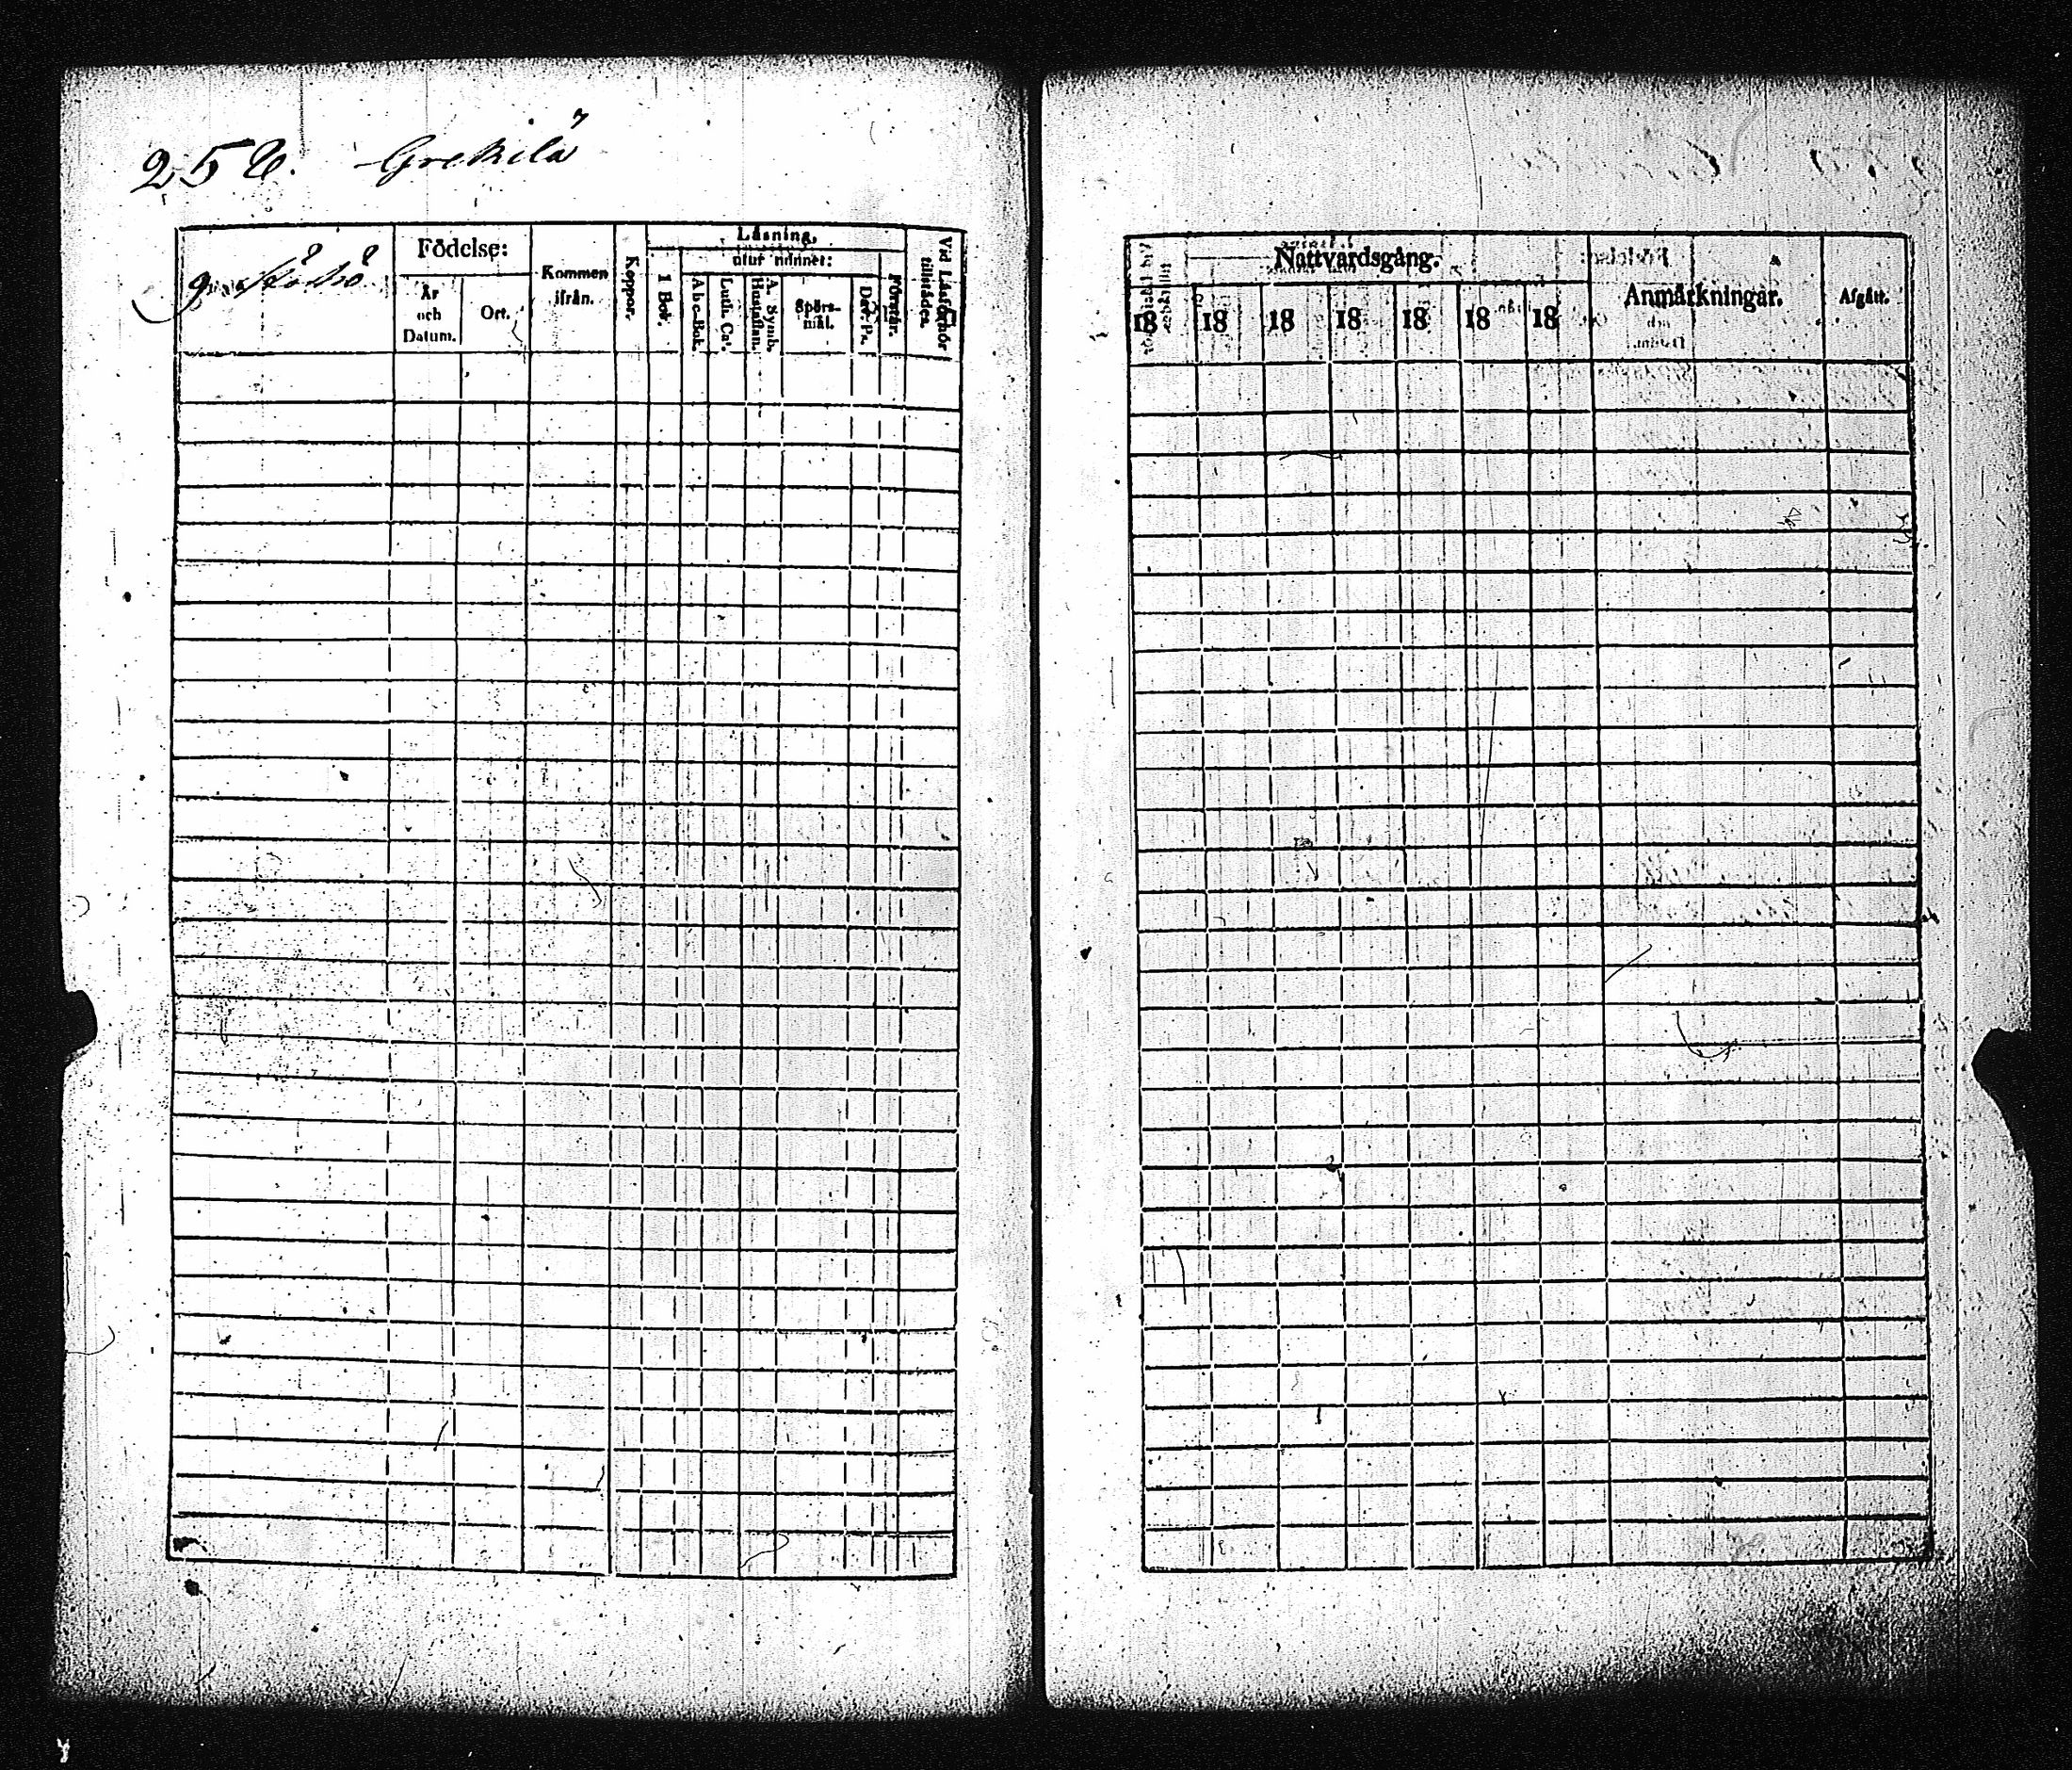 256. Grekilä
Födelse:
År och Datum.
Ort.
Kommen ifrån.
Koppor.
Läsning,
utur minnet:
I Bok.
Abc-Bok.
Luth. Cat.
A. Symb. Hustaflan.
Spörsmål.
Dav. Ps.
Förstår.
Vid Läsförhör tillstädes.
Nattvardsgång.
18 18 18 18 18 18 18
Anmärkningar.
Afgått.